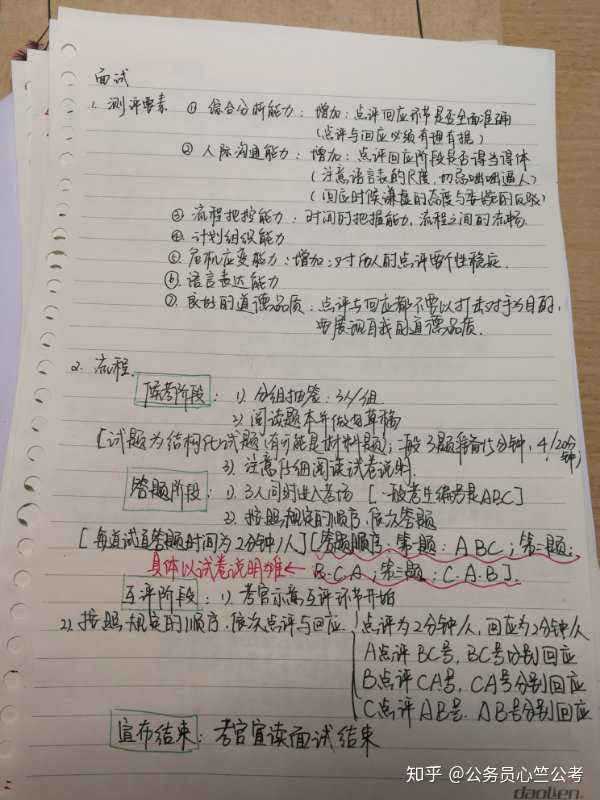 面试
1. 测评要素 ① 综合分析能力：增加：点评回应环节是否全面准确
（点评与回应必须有理有据）
② 人际沟通能力：增加：点评回应阶段是否得当得体
（注意语言表的尺度，切忌咄咄逼人）
（回应时候谦虚的态度与委婉的反驳）
③ 流程把控能力：时间的把握能力，流程之间的流畅
④ 计划组织能力
⑤ 危机应变能力：增加：对他人的点评要个性稳定.
⑥ 语言表达能力
⑦ 良好的道德品质：点评与回应都不要以打击对手为目的，
要展现自我的道德品质.
2. 流程.
候考阶段：1）分组抽签：3人/组
2）阅读题本并做好草稿
[试题为结构化试题（有可能是材料题）；一般3题，15分钟，4/20分钟]
3）注意仔细阅读试卷说明.
答题阶段：1）3人同时进入考场 [一般考生编号是ABC]
2）按照规定的顺序，依次答题
[每道试题答题时间为2分钟/人] [答题顺序：第一题：ABC；第二题：
具体以试卷说明为准← B.C.A；第三题：C.A.B].
互评阶段：1）考官示意互评环节开始
2）按照规定的顺序，依次点评与回应. 点评为2分钟/人，回应为2分钟/人
A点评BC号，BC号分别回应
B点评CA号，CA号分别回应
C点评AB号，AB号分别回应
宣布结束：考官宣读面试结束
知乎 @公务员心竺公考
daolen